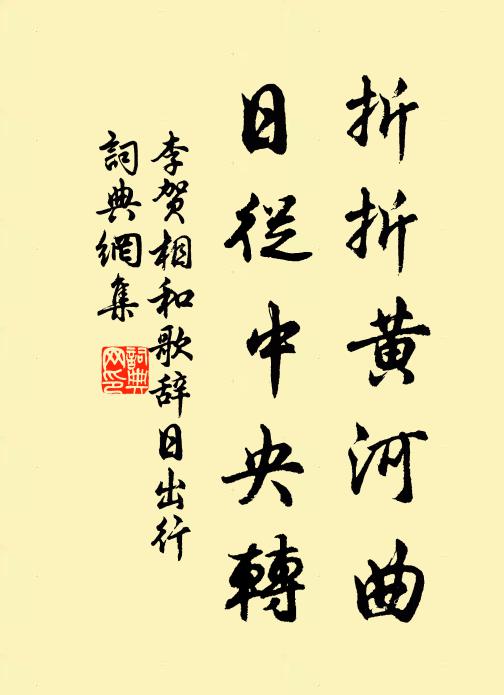 折折黄河曲
日從中央轉
李贺相和歌辞日出行
詞典網集
詞典網印